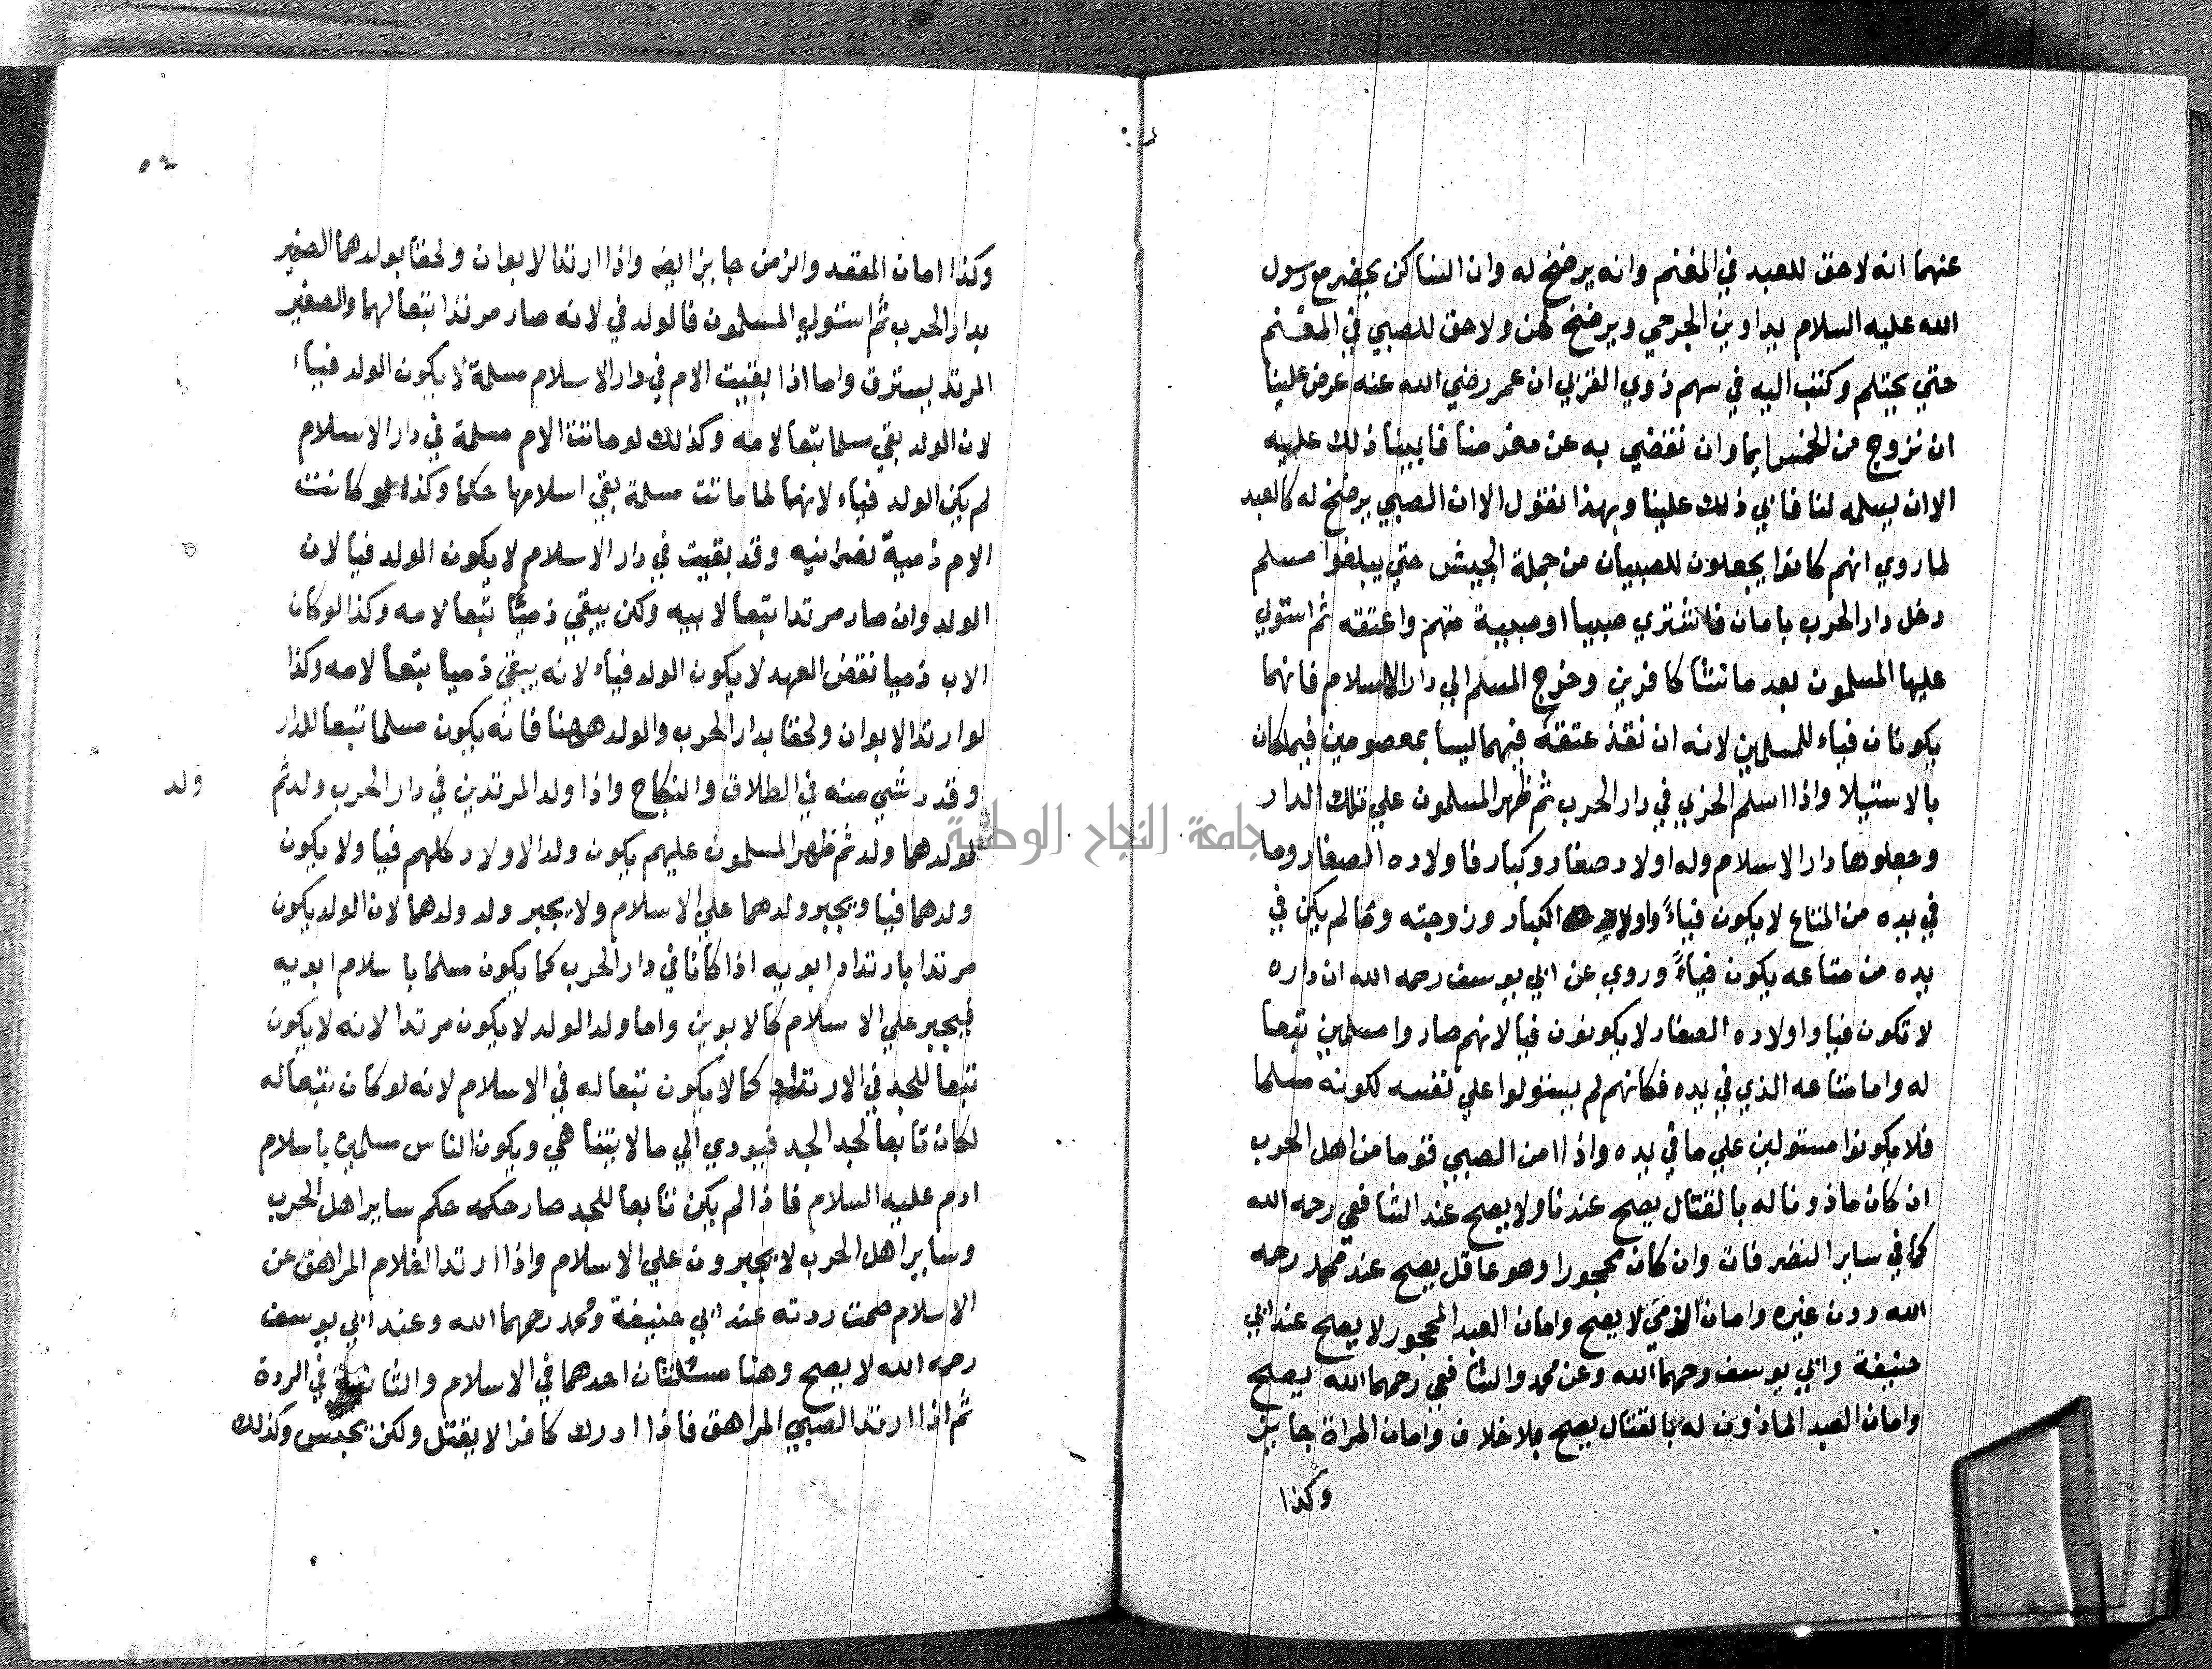 عنهما انه لاحق للعبد في المغنم وانه يرضخ له وان النسا كن يحضر مع رسول
الله عليه السلام يداوين الجرحي ويرضخ لهن ولاحق للصبي في المغنم
حتي يحتلم وكتب اليه في سهم ذوي القربي ان عمر رضي الله عنه عرض علينا
ان نزوج من الخمس ايما وان نقضي به عن مغرمنا فابينا ذلك عليه
الا ان يسلمه لنا فابي ذلك علينا وبهذا نقول الا ان الصبي يرضخ له كالعبد
لما روي انهم كانوا يجعلون للصبيان من جملة الجيش حتي يبلغوا مسلم
دخل دار الحرب بامان فاشتري صبيا او صبية منهم واعتقه ثم استولي
عليها المسلمون بعد ماتتا كافرين وخرج المسلم الي دار الاسلام فانهما
يكونان فياء للمسلمين لانه ان نفذ عتقه فيهما ليسا بمعصومين فيملكان
بالاستيلا واذا اسلم الحربي في دار الحرب ثم ظهر المسلمون علي تلك الدار
وجعلوها دار الاسلام وله اولاد صغار وكبار فاولاده الصغار وما
في يده من المتاع لا يكون فياءً واولاده الكبار وزوجته وما لم يكن في
يده من متاعه يكون فياءً وروي عن ابي يوسف رحمه الله ان داره
لا تكون فيا واولاده الصغار لا يكونون فيا لانهم صاروا مسلمين تبعا
له واما متاعه الذي في يده فكانهم لم يستولوا علي نفسه لكونه مسلما
فلا يكونوا مستولين علي ما في يده واذا امن الصبي قوما من اهل الحرب
ان كان ماذونا له بالقتال يصح عندنا ولا يصح عند الشافعي رحمه الله
كما في ساير التصرفات وان كان محجورا وهو عاقل يصح عند محمد رحمه
الله دون غيره وامان الذمي لا يصح وامان العبد المحجور لا يصح عند ابي
حنيفة وابي يوسف رحمهما الله وعن محمد والشافعي رحمهما الله يصح
وامان العبد الماذون له بالقتال يصح بلا خلاف وامان المراة جايز
وكذا
وكذا امان المقعد والزمن جايز ايضه واذا ارتدا لابوان ولحقا بولدهما الصغير
بدار الحرب ثم استولي المسلمون فالولد في لانه صار مرتدا تبعا لهما والصغير
المرتد يسترق واما اذا بقيت الام في دار الاسلام مسلمة لا يكون الولد فياء
لان الولد بقي مسلما تبعا لامه وكذلك لو ماتت الام مسلمة في دار الاسلام
لم يكن الولد فياء لانهما لما ماتت مسلمة بقي اسلامها حكما وكذا لو كانت
الام ذمية نصرانيه وقد بقيت في دار الاسلام لا يكون الولد فيا لان
الولد وان صار مرتدا تبعا لابيه ولكن يبقي ذميًّا تبعا لامه وكذا لو كان
الاب ذميا نقض العهد لا يكون الولد فياء لانه يبقي ذميا تبعا لامه وكذا
لو ارتد الابوان ولحقا بدار الحرب والولد ههنا فانه يكون مسلما تبعا للدار
وقد رشي منه في الطلاق والنكاح واذا ولد المرتدين في دار الحرب ولد ثم
ولد
لولدهما ولد ثم ظهر المسلمون عليهم يكون ولد الاولاد كلهم فيا ولا يكون
ولدهما فيا ويجبر ولدهما علي الاسلام ولا يجبر ولد ولدهما لان الولد يكون
مرتدا بارتداد ابويه اذا كانا في دار الحرب كما يكون مسلما باسلام ابويه
فيجبر علي الاسلام كالابوين واما ولد الولد لا يكون مرتدا لانه لا يكون
تبعا للجد في الارتداد كما لا يكون تبعا له في الاسلام لانه لو كان تبعا له
لكان تابعا لجد الجد فيودي الي ما لا يتناهي ويكون الناس مسلمين باسلام
ادم عليه السلام فاذا لم يكن تابعا للجد صار حكمه حكم ساير اهل الحرب
وساير اهل الحرب لا يجبرون علي الاسلام واذا ارتد الغلام المراهق عن
الاسلام صحت ردته عند ابي حنيفة ومحمد رحمهما الله وعند ابي يوسف
رحمه الله لا يصح وهنا مسئلتان احدهما في الاسلام والثانية في الردة
ثم اذا ارتد الصبي المراهق فاذا ادرك كافرا لا يقتل ولكن يحبس وكذلك
جامعة النجاح الوطنية